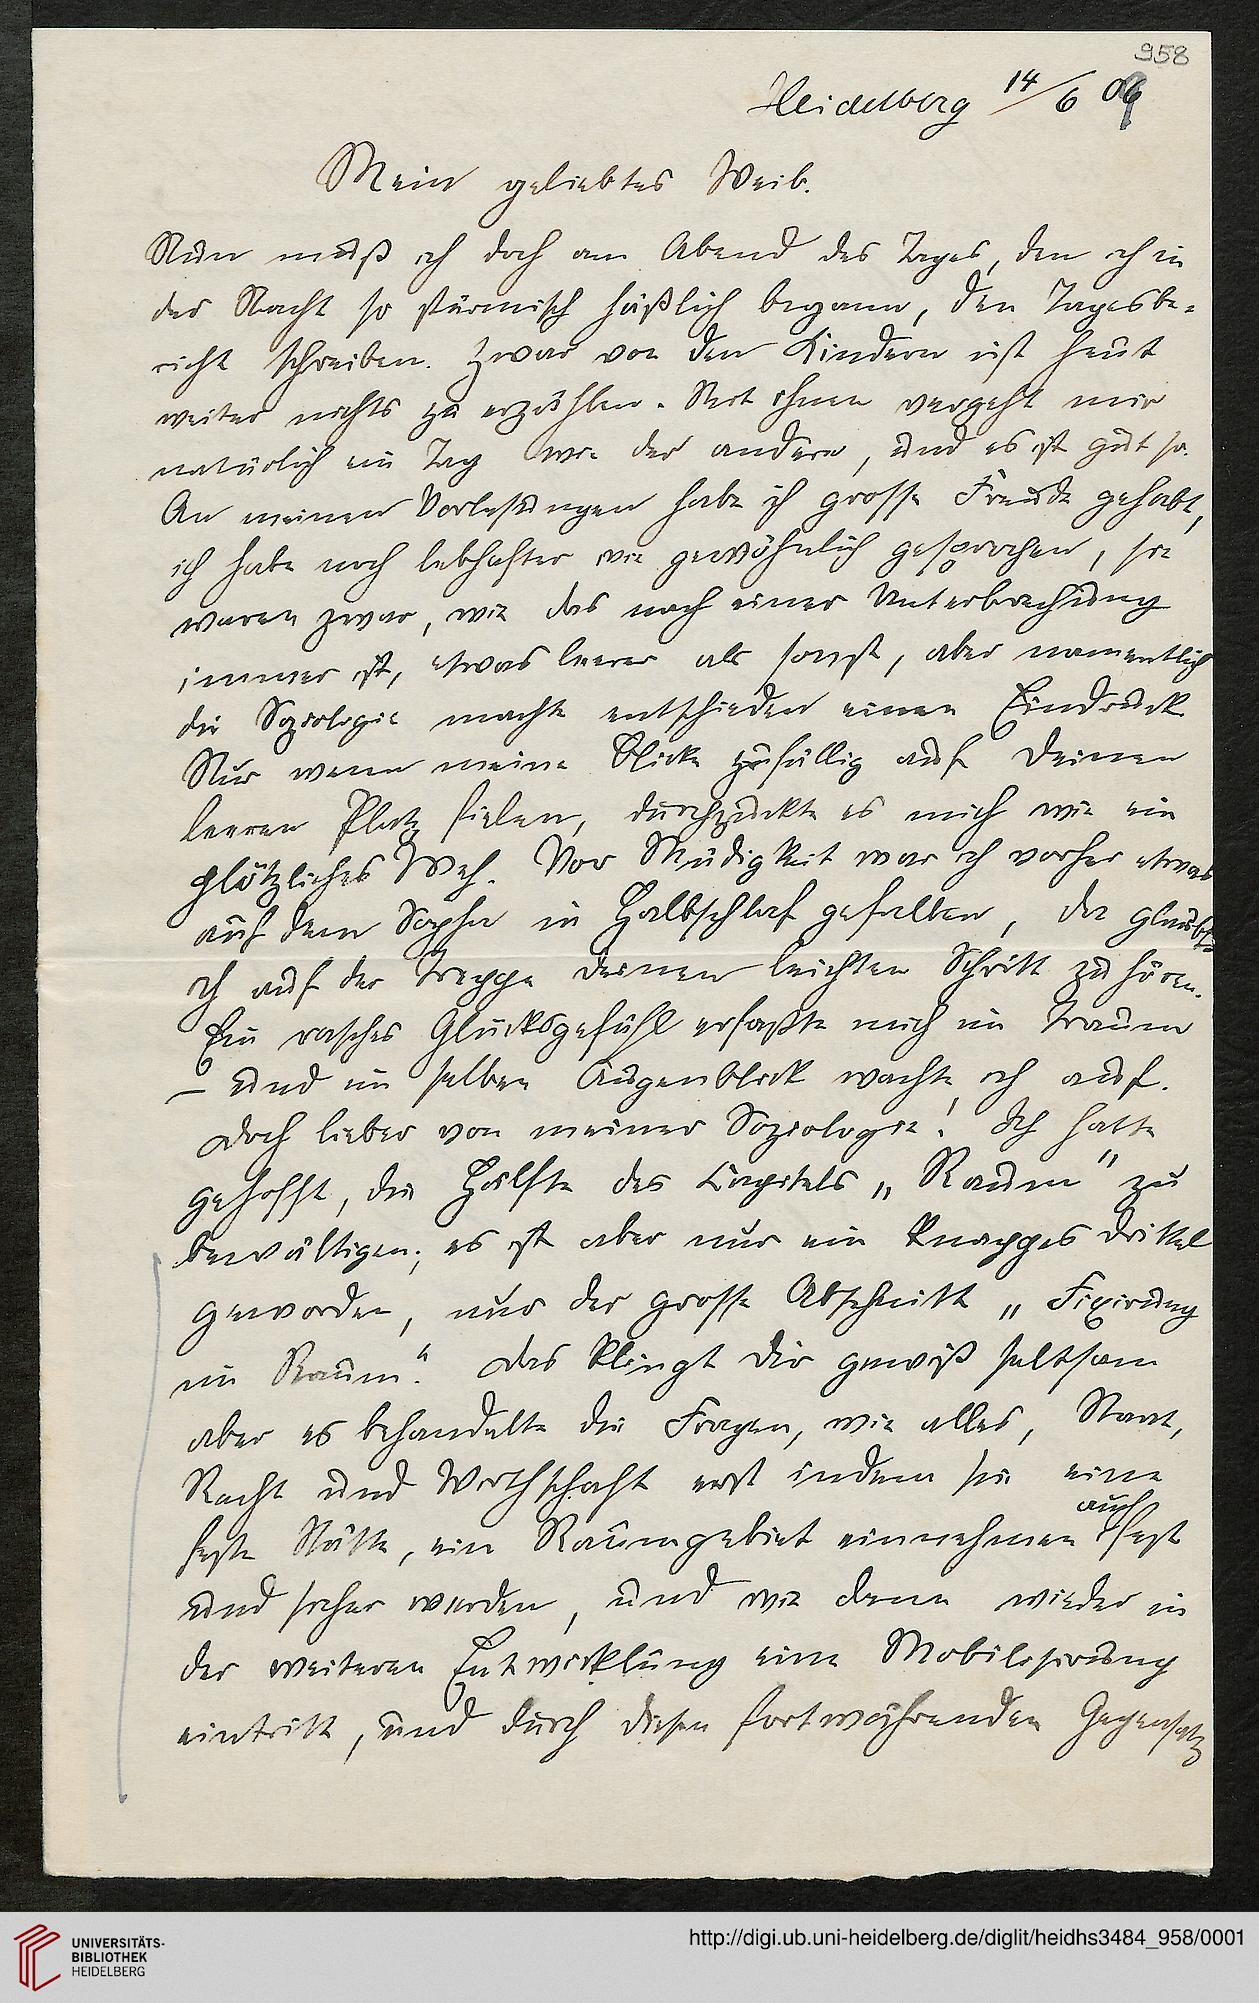 958
Heidelberg 14/6 09
Mein geliebtes Weib.
Nun muß ich doch am Abend des Tages, den ich in
der Nacht so stürmisch häßlich begann, den Tagesbe-
richt schreiben. Zwar von den Kindern ist heut
weiter nichts zu erzählen. Mit ihnen vergeht mir
natürlich ein Tag wie der andere, und es ist gut so.
An meinen Vorlesungen habe ich grosse Freude gehabt,
ich habe noch lebhafter wie gewöhnlich gesprochen, sie
waren zwar, wie das nach einer Unterbrechung
immer ist, etwas leerer als sonst, aber namentlich
die Soziologie machte entschieden einen Eindruck
Nur wenn meine Blicke zufällig auf Deinen
leeren Platz fielen, durchzuckte es mich wie ein
plötzliches Weh. Vor Müdigkeit war ich vorher etwas
auf dem Sopha in Halbschlaf gefallen, da glaubte
ich auf der Treppe deinen leichten Schritt zu hören.
Ein rasches Glücksgefühl erfaßte mich im Traum
– und im selben Augenblick wachte ich auf.
Doch lieber von meiner Soziologie! Ich hatte
gehofft, die Hälfte des Capitels „Raum" zu
bewältigen; es ist aber nur ein knappes Drittel
geworden, nur der grosse Abschnitt „Fixirung
im Raum." Das klingt Dir gewiß seltsam
aber es behandelte die Fragen, wie alles, Staat,
Recht und Wirthschaft erst indem sie eine
feste Stätte, ein Raumgebiet einnehmen auch fest
und sicher werden, und wie dann wieder in
der weiteren Entwicklung eine Mobilisirung
eintritt, und durch diesen fortwährenden Gegensatz
UNIVERSITÄTS-
BIBLIOTHEK
HEIDELBERG
http://digi.ub.uni-heidelberg.de/diglit/heidhs3484_958/0001